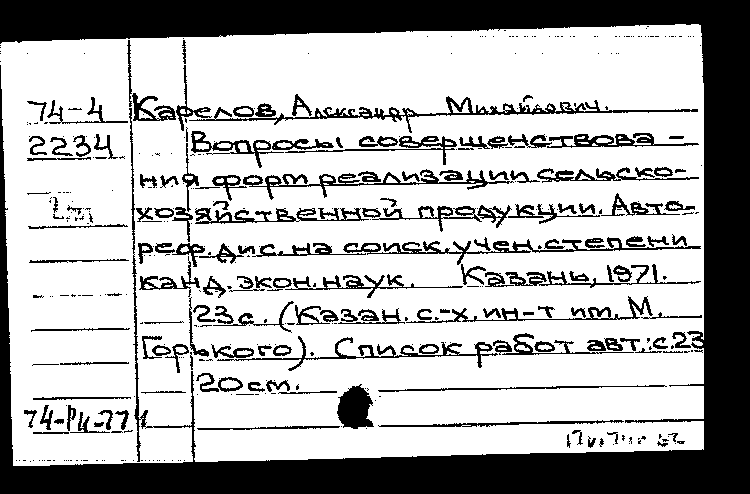 74-4 Карелов, Александр Михайлович.
2234 Вопросы совершенствова-
ния форм реализации сельско-
хозяйственной продукции. Авто-
реф. дис. на соиск. учен. степени
канд. экон. наук. Казань, 1971.
23с. (Казан. с.-х. ин-т им. М.
Горького). Список работ авт.: с.23
20 см.